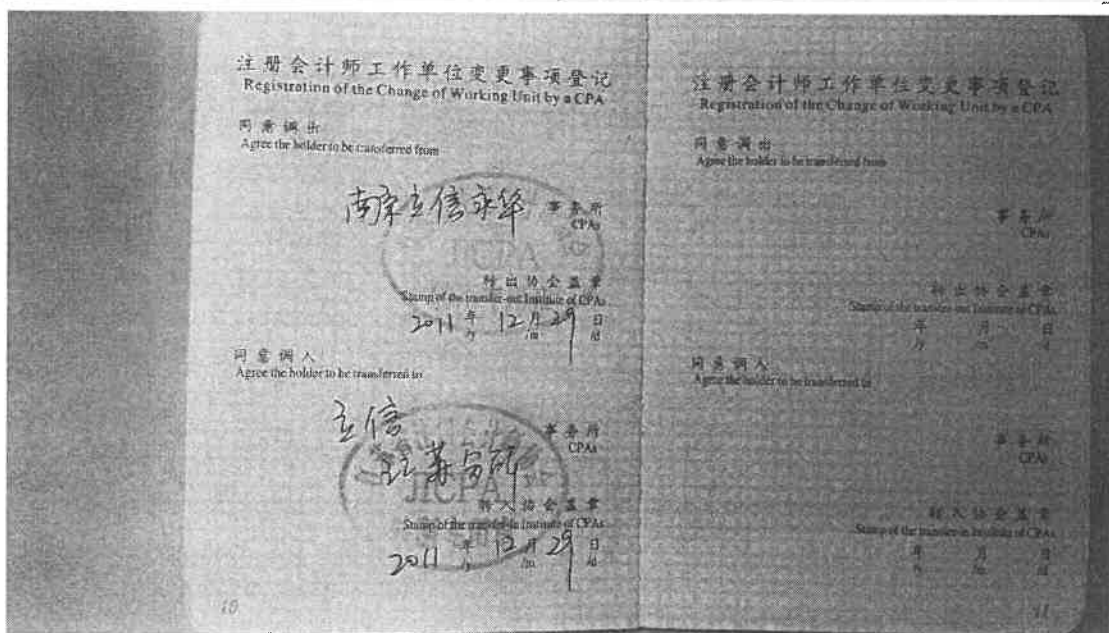 注册会计师工作单位变更事项登记
Registration of the Change of Working Unit by a CPA
同意调出
Agree the holder to be transferred from
南京立信永华 事务所
CPAs
JICPA
转出协会盖章
Stamp of the transfer-out Institute of CPAs
2011 年 12 月 29 日
/y /m /d
同意调入
Agree the holder to be transferred to
立信
江苏分所 事务所
CPAs
JICPA
转入协会盖章
Stamp of the transfer-in Institute of CPAs
2011 年 12 月 29 日
/y /m /d
10
注册会计师工作单位变更事项登记
Registration of the Change of Working Unit by a CPA
同意调出
Agree the holder to be transferred from
事务所
CPAs
转出协会盖章
Stamp of the transfer-out Institute of CPAs
年 月 日
/y /m /d
同意调入
Agree the holder to be transferred to
事务所
CPAs
转入协会盖章
Stamp of the transfer-in Institute of CPAs
年 月 日
/y /m /d
11